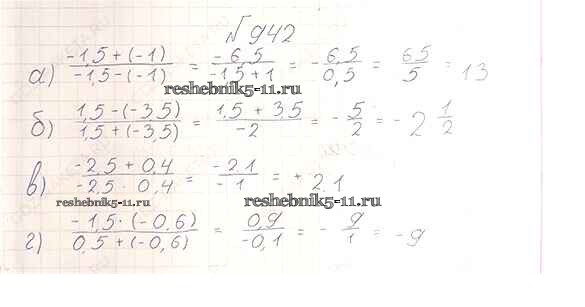 №942
а) -1,5 + (-1) / -1,5 - (-1) = -6,5 / -1,5 + 1 = - 6,5 / 0,5 = 65 / 5 = 13
reshebnik5-11.ru
б) 1,5 - (-3,5) / 1,5 + (-3,5) = 1,5 + 3,5 / -2 = - 5 / 2 = -2 1/2
в) -2,5 + 0,4 / -2,5 · 0,4 = -2,1 / -1 = + 2,1
reshebnik5-11.ru reshebnik5-11.ru
г) -1,5 · (-0,6) / 0,5 + (-0,6) = 0,9 / -0,1 = - 9 / 1 = -9